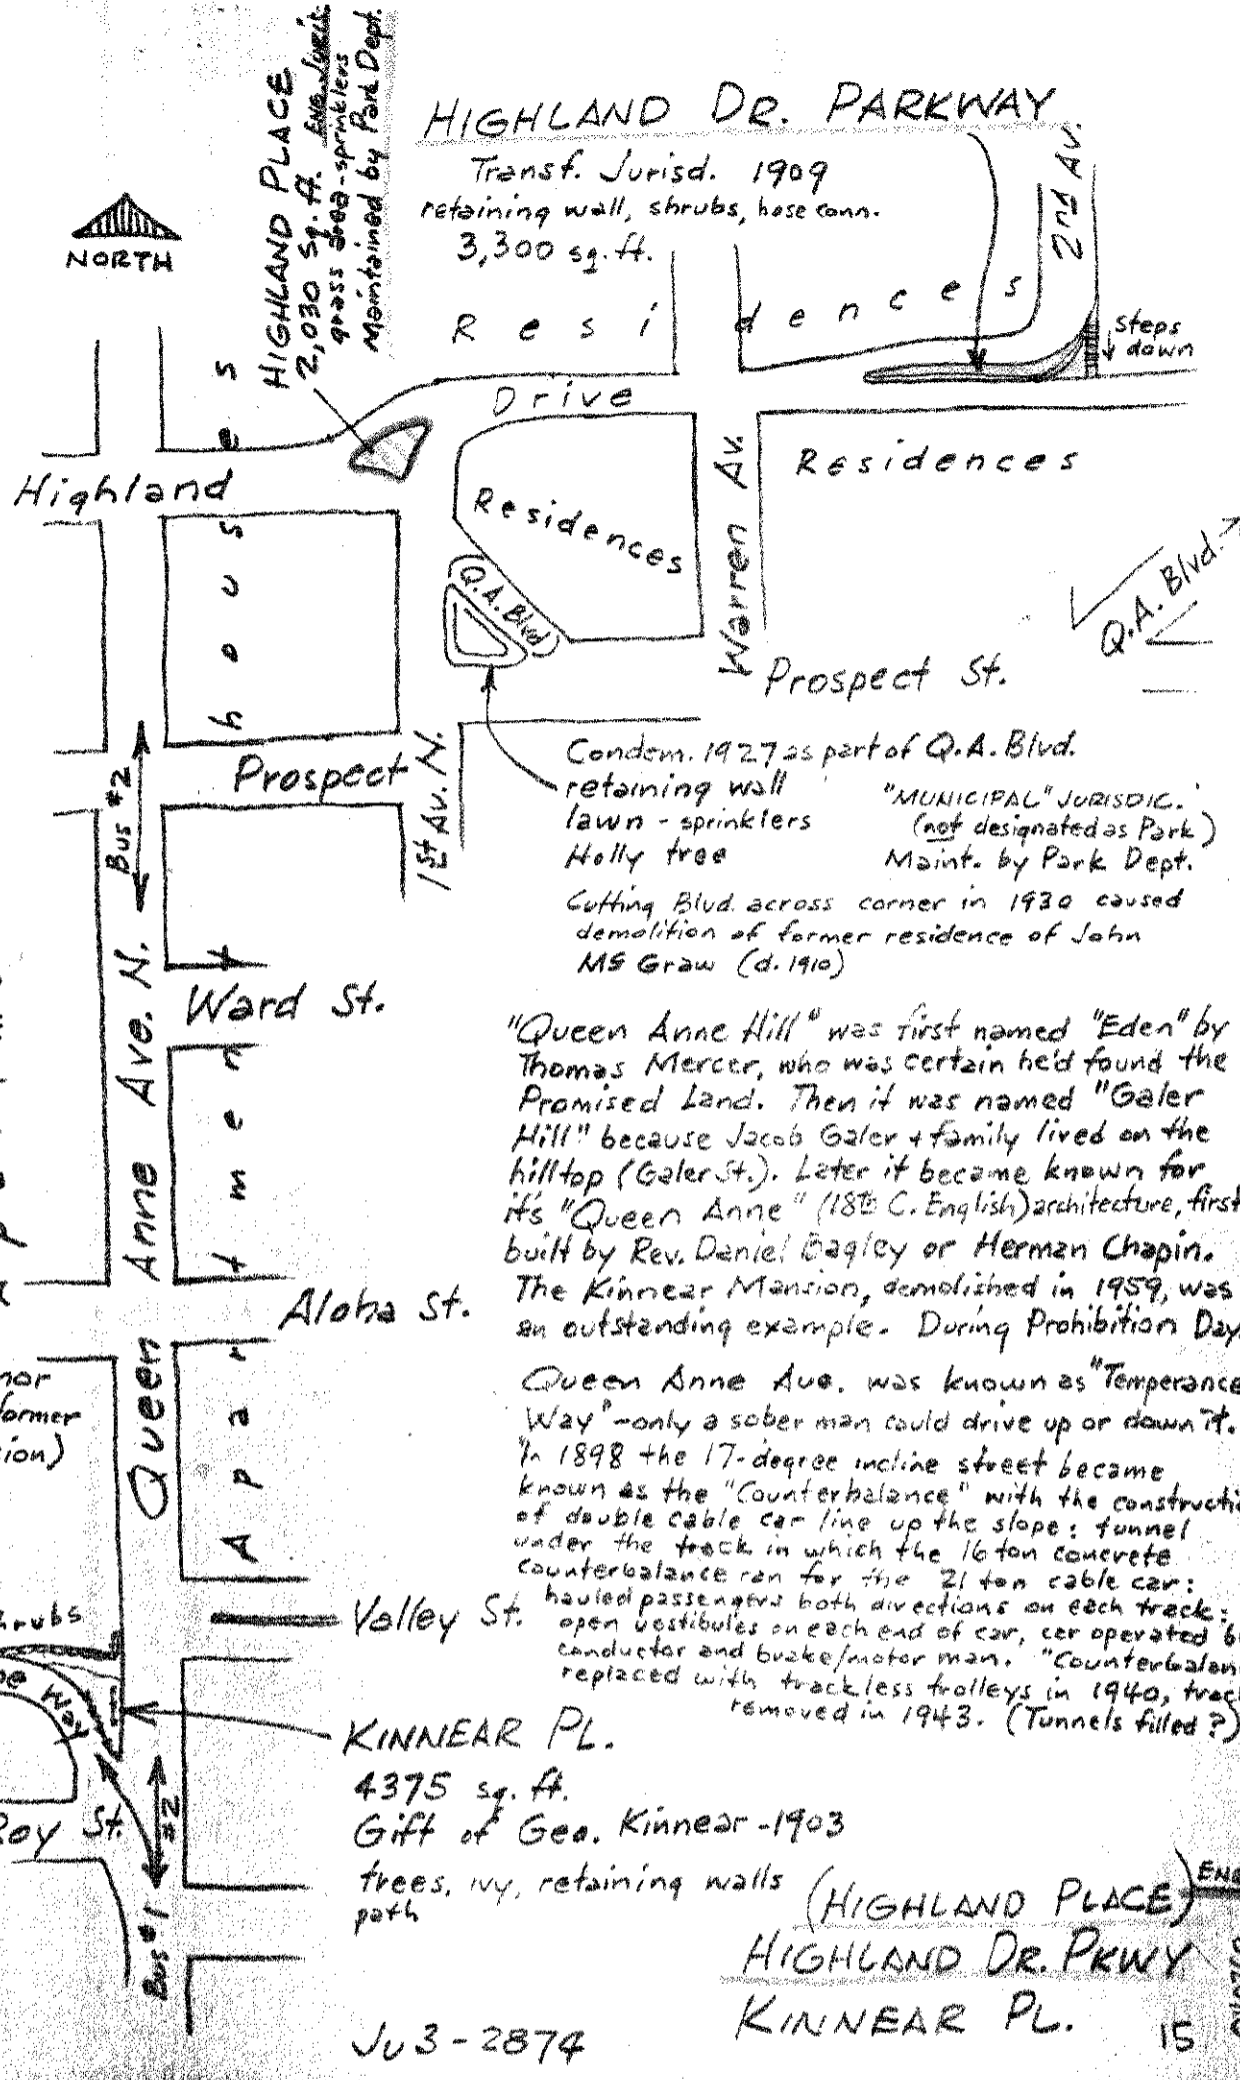 HIGHLAND PLACE
2,030 sq. ft. Eng. Juris.
grass area-sprinklers
Maintained by Park Dept.
HIGHLAND DR. PARKWAY
Transf. Jurisd. 1909
retaining wall, shrubs, hose conn.
3,300 sq. ft.
2nd Av.
NORTH
Residences
steps
down
Drive
Highland
houses
Residences
Warren Av.
Residences
(Q.A. Blvd)
Q.A. Blvd.
Prospect St.
Prospect
1st Av. N.
Bus #2
Condem. 1927 as part of Q.A. Blvd.
retaining wall
lawn - sprinklers
Holly tree
"MUNICIPAL" JURISDIC.
(not designated as Park)
Maint. by Park Dept.
Cutting Blvd. across corner in 1930 caused
demolition of former residence of John
McGraw (d. 1910)
Ward St.
Queen Anne Ave. N.
Apartment
"Queen Anne Hill" was first named "Eden" by
Thomas Mercer, who was certain he'd found the
Promised Land. Then it was named "Galer
Hill" because Jacob Galer + family lived on the
hilltop (Galer St.). Later it became known for
it's "Queen Anne" (18th C. English) architecture, first
built by Rev. Daniel Bagley or Herman Chapin.
The Kinnear Mansion, demolished in 1959, was
an outstanding example. During Prohibition Day
Aloha St.
Queen Anne Ave. was known as "Temperance
Way" - only a sober man could drive up or down it.
In 1898 the 17-degree incline street became
known as the "Counterbalance" with the constructi
of double cable car line up the slope: tunnel
under the track in which the 16 ton concrete
counterbalance ran for the 21 ton cable car:
hauled passengers both directions on each track:
open vestibules on each end of car, car operated b
conductor and brake/motor man. "Counterbalan
replaced with trackless trolleys in 1940, trac
removed in 1943. (Tunnels filled?)
nor
former
ion)
hrubs
Way
Valley St.
KINNEAR PL.
4375 sq. ft.
Gift of Geo. Kinnear - 1903
trees, ivy, retaining walls
path
Roy St.
#2
Bus #1
(HIGHLAND PLACE) ENG
HIGHLAND DR. PKWY
KINNEAR PL.
15
Ju 3-2874